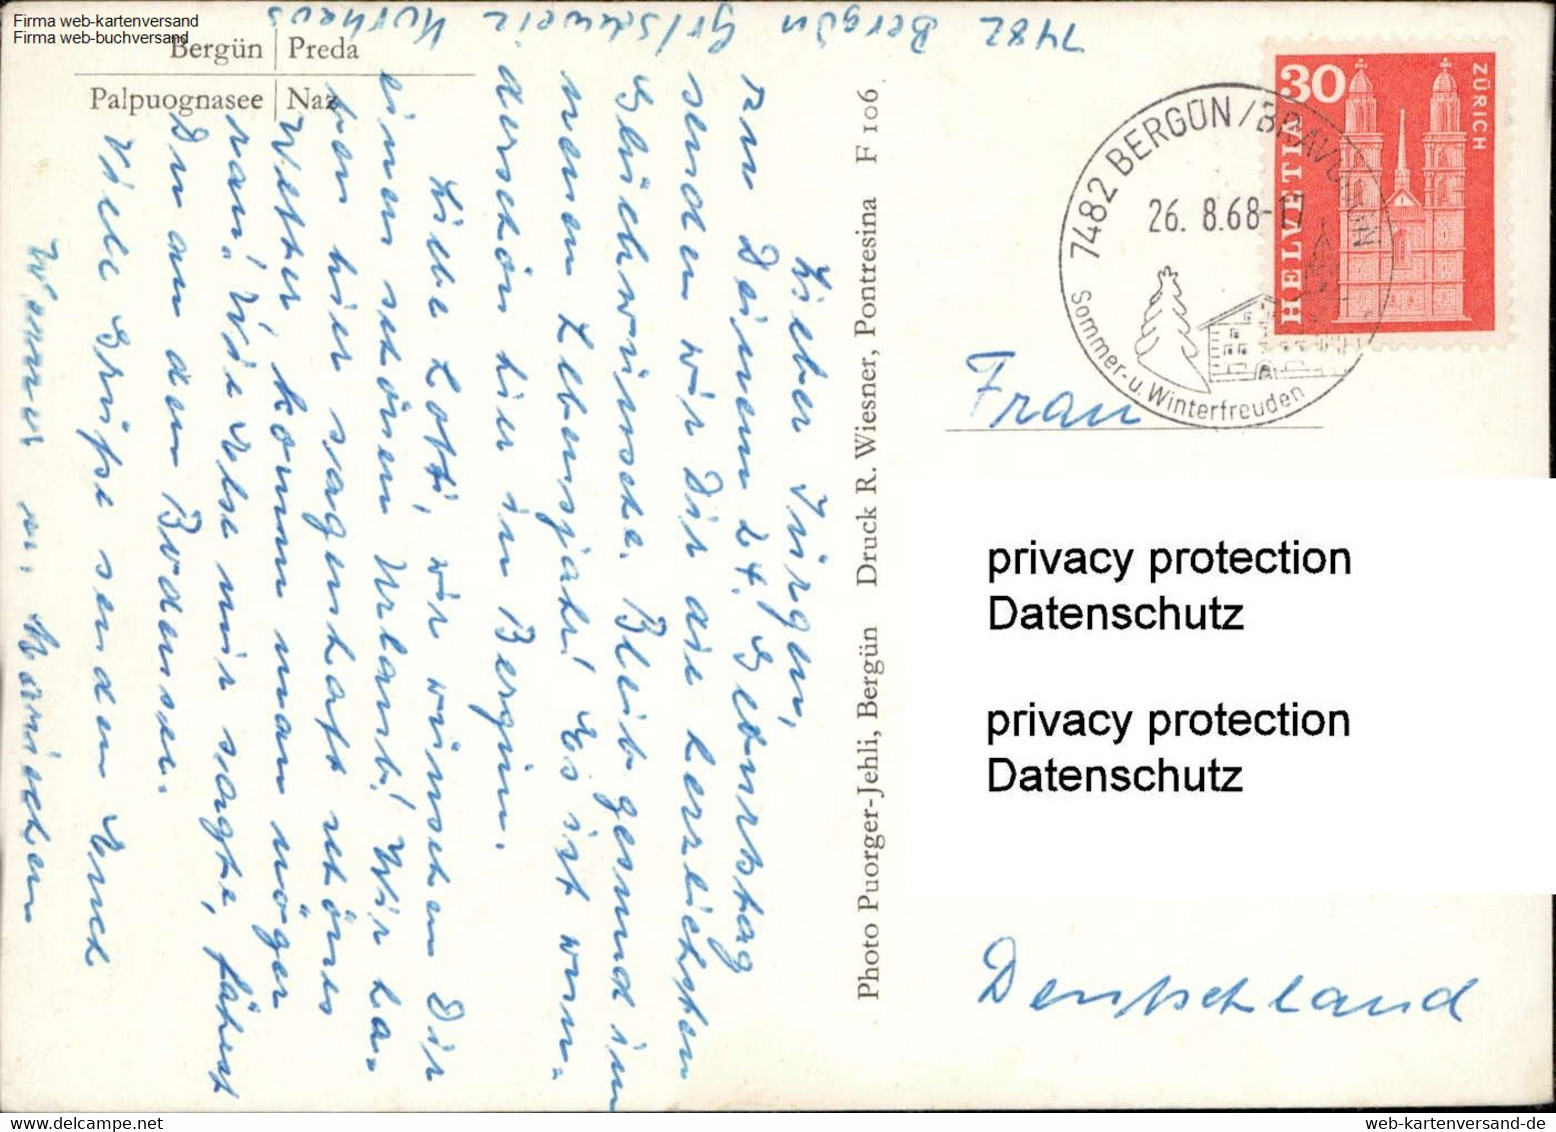 Firma web-kartenversand
Firma web-buchversand
Bergün | Preda
Palpuognasee | Naz
7482 Bergün Gr/Schweiz Kurhaus
Lieber Jürgen,
zu Deinem 24. Geburtstag
senden wir Dir die herzlichsten
Glückwünsche. Bleib gesund im
neuen Lebensjahr! Es ist wun-
derschön hier in Bergün.
Liebe Lotti, wir wünschen Dir
einen schönen Urlaub! Wir ha-
ben hier sagenhaft schönes
Wetter, komm man nöger
ran! Wie Ilse mir sagte, fährst
Du an den Bodensee.
Viele Grüße senden Euch
Werner u.
Photo Puorger-Jehli, Bergün Druck R. Wiesner, Pontresina F 106
30
HELVETIA
ZÜRICH
7482 BERGÜN/BRAVUOGN
26. 8.68-17
Sommer- u. Winterfreuden
Frau
privacy protection
Datenschutz
privacy protection
Datenschutz
Deutschland
www.web-kartenversand.de / www.web-buchversand.de
www.web-kartenversand-de